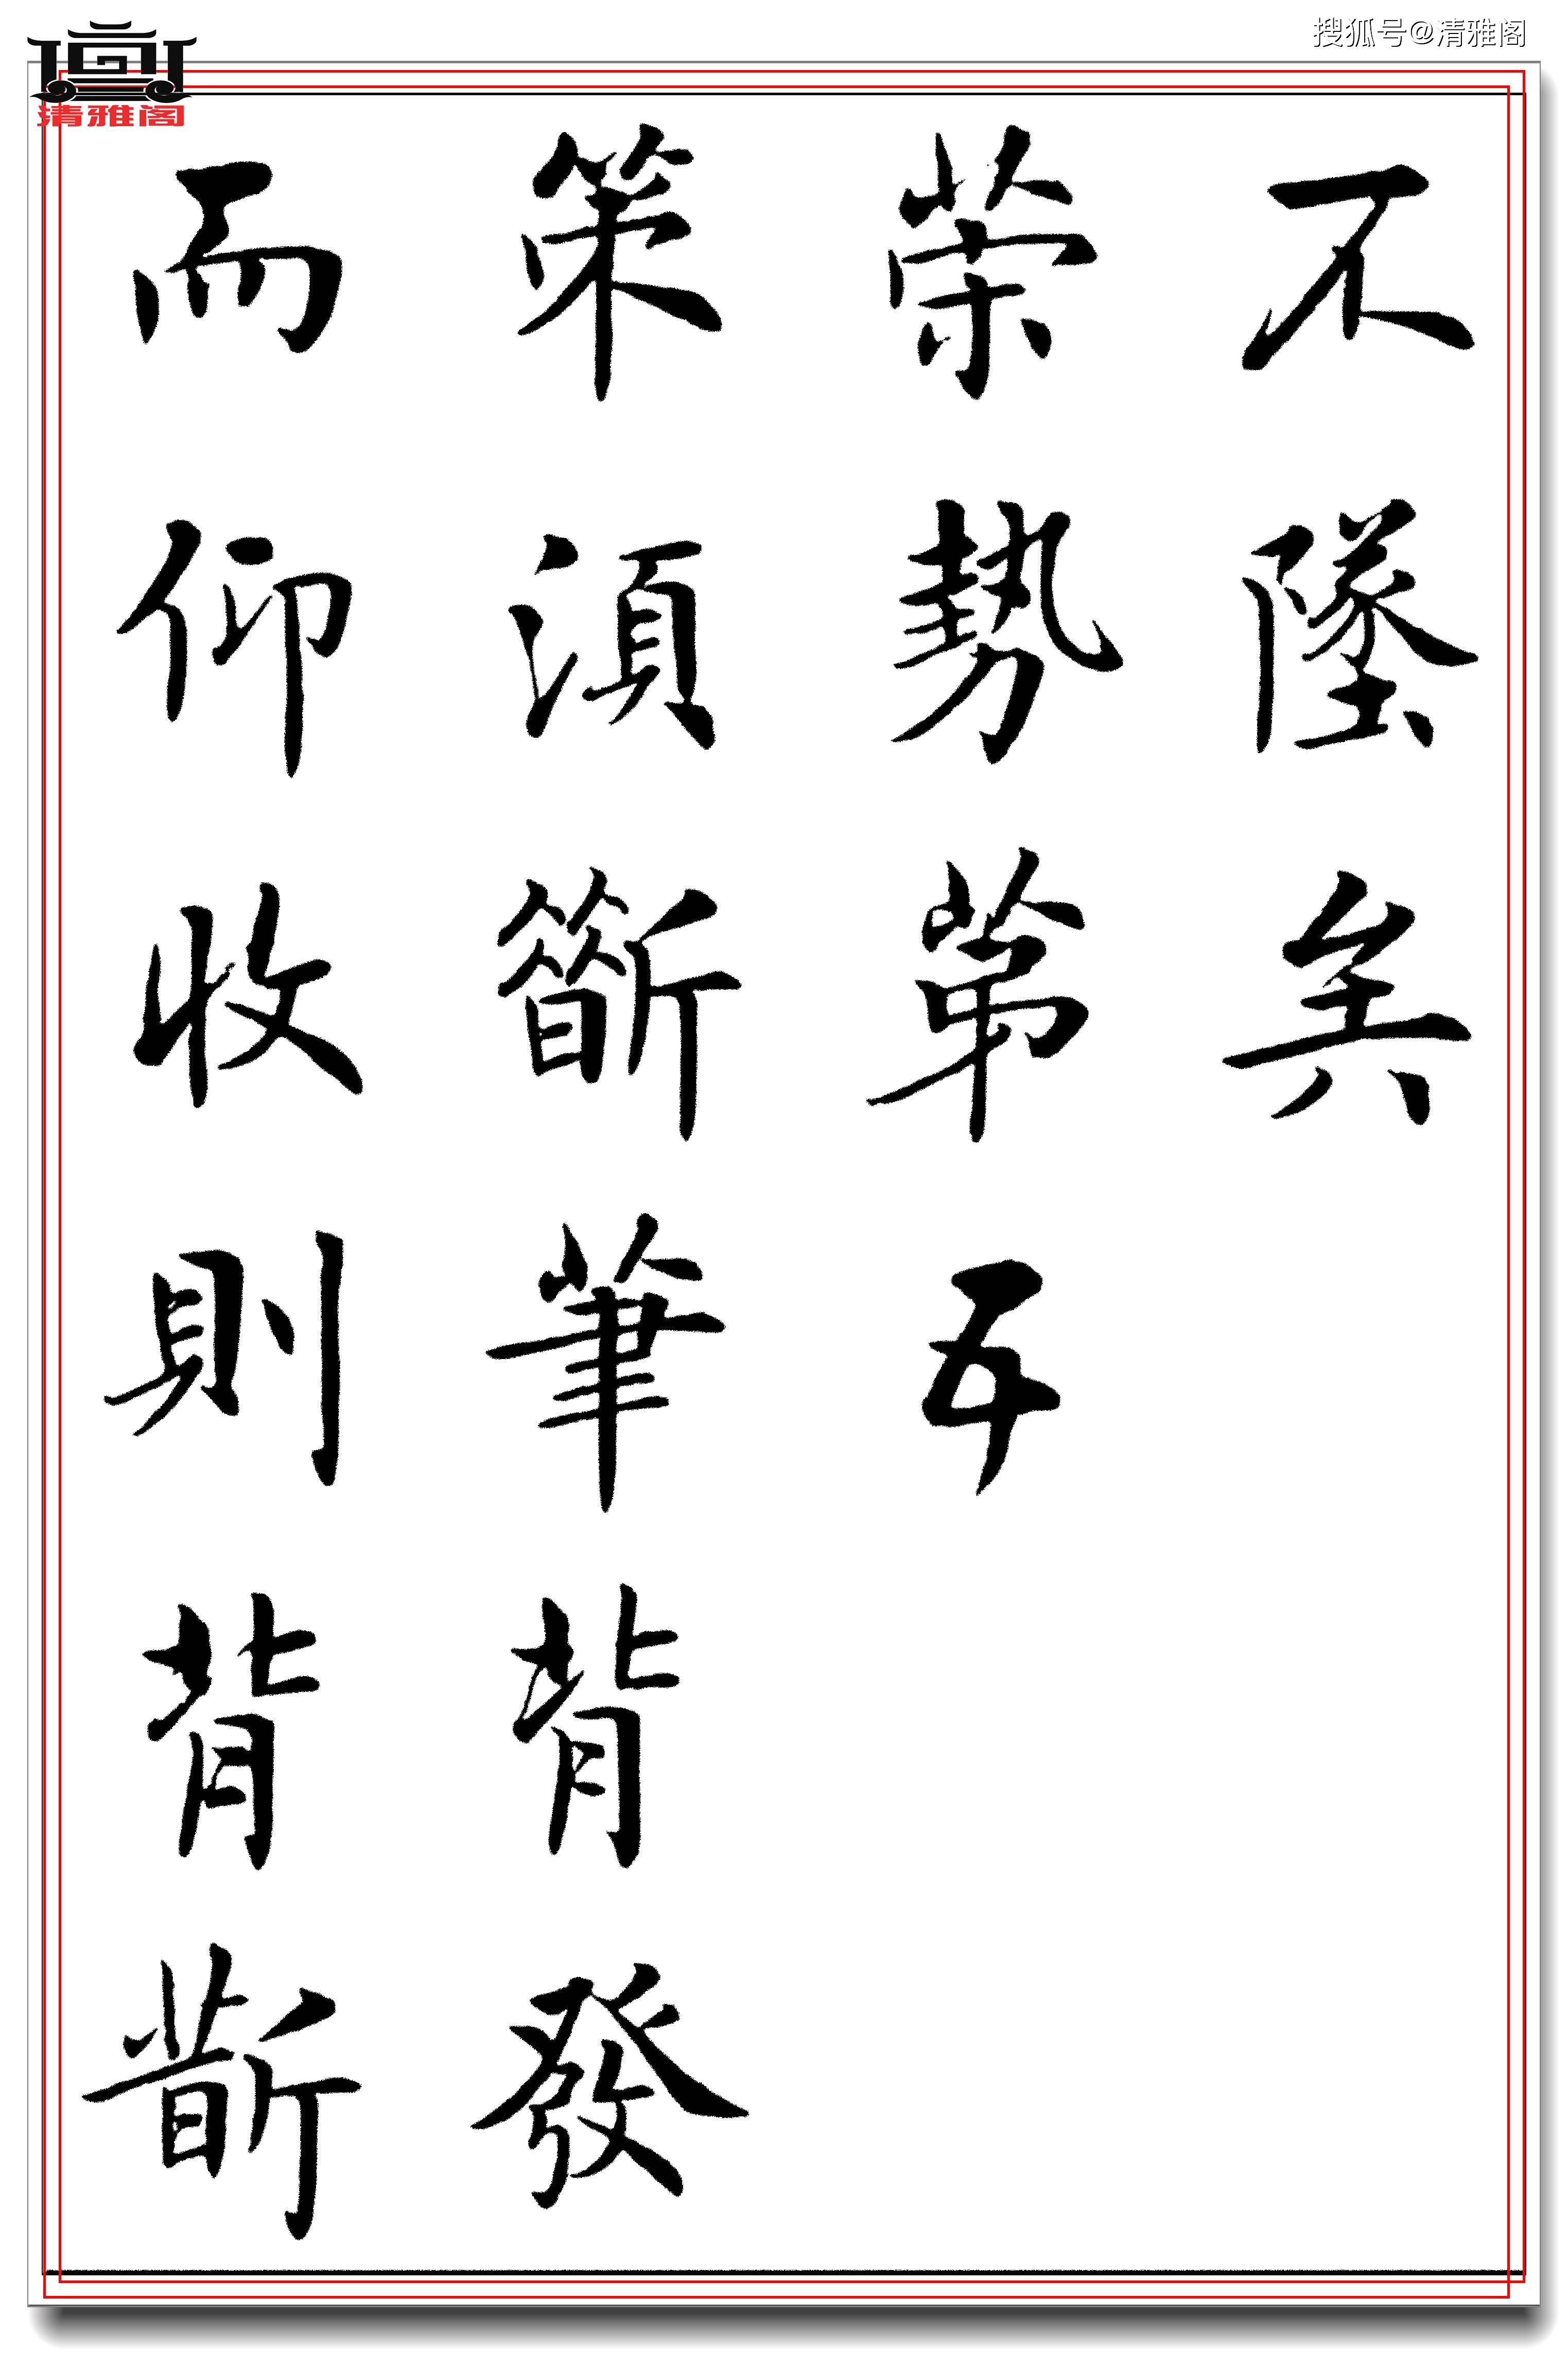 搜狐号@清雅阁
清雅阁
不墜矣
策勢第五
策須斮筆背發
而仰收則背斮